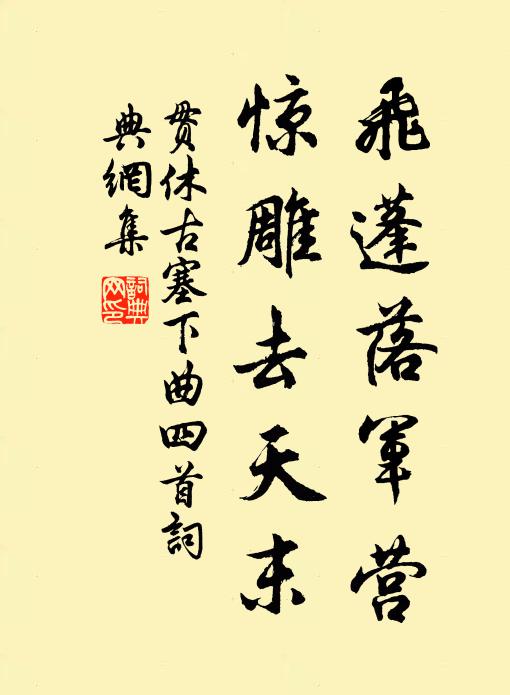 飛蓬落軍营
惊雕去天末
貫休古塞下曲四首詞
典網集
詞典
网印